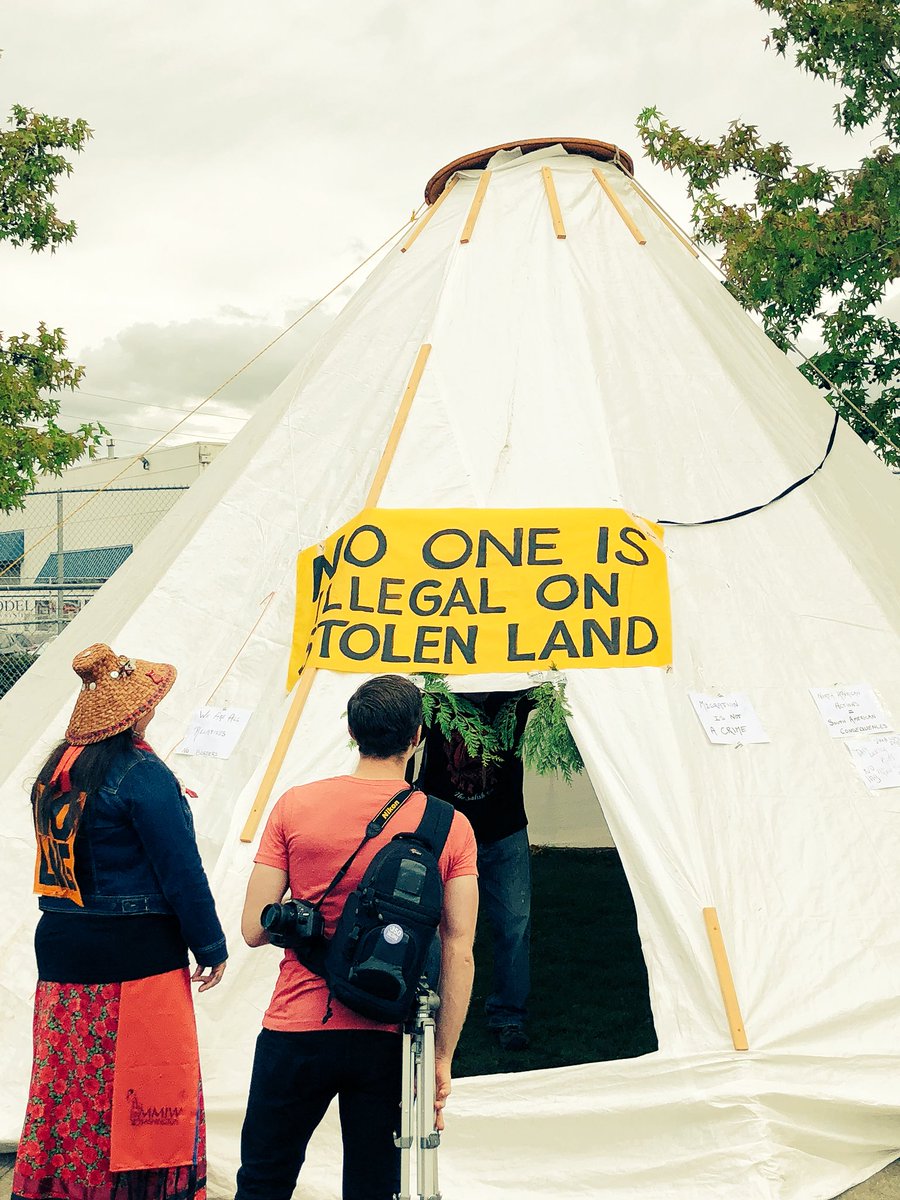 NO ONE IS
ILLEGAL ON
STOLEN LAND
WE ARE ALL
RELATIVES
NO BORDERS
MIGRATION
IS NOT
A CRIME
NORTH AMERICAN
ACTIONS =
SOUTH AMERICAN
CONSEQUENCES
Nikon
MMIW
WASHINGTON